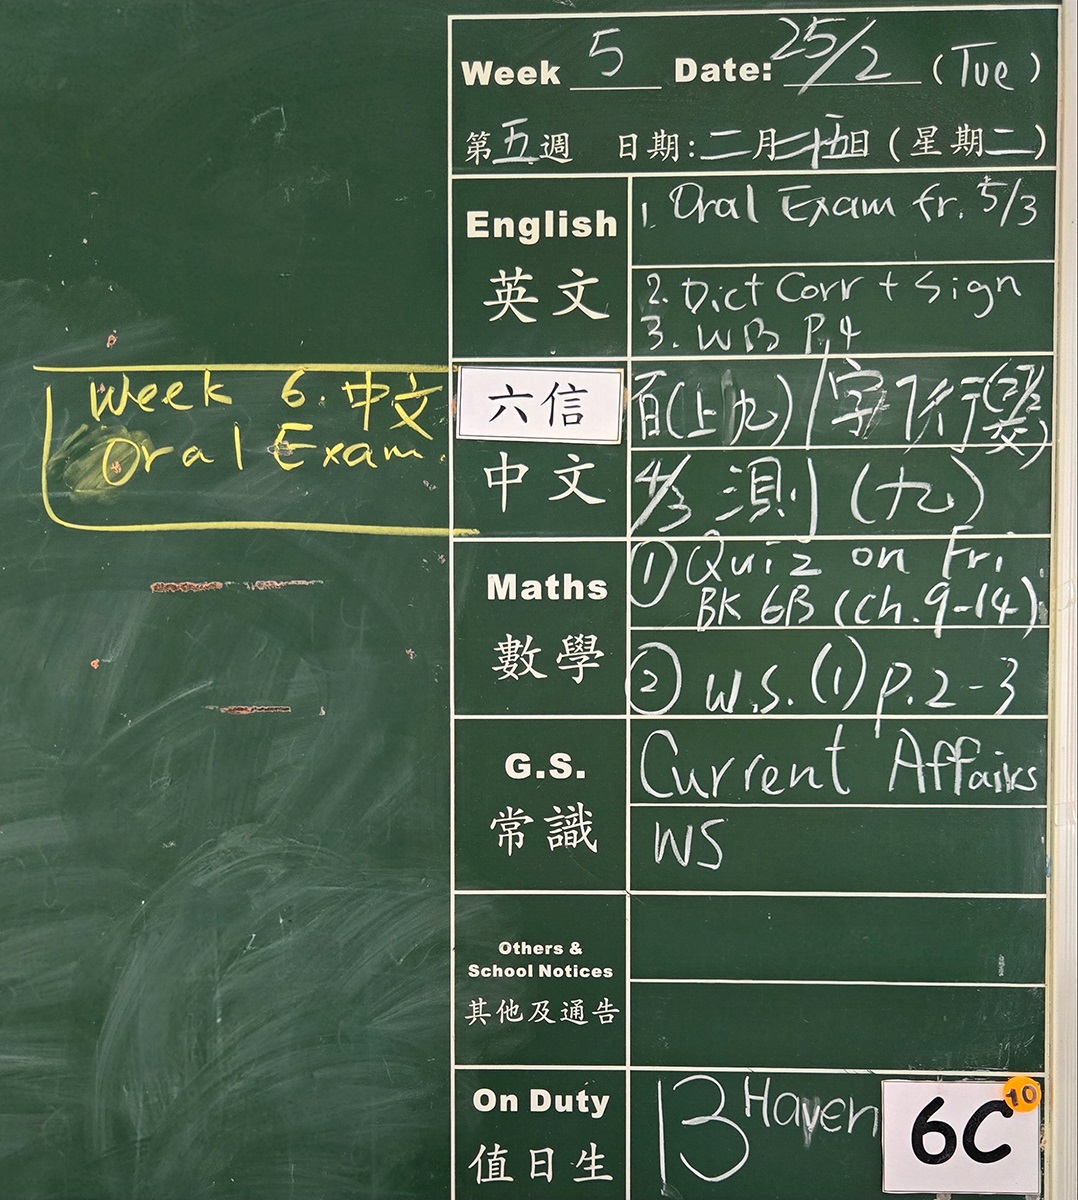 Week 5 Date: 25/2 (Tue)
第五週 日期:二月二十五日(星期二)
English
英文
1. Oral Exam fr. 5/3
2. Dict Corr + Sign
3. WB P.4
Week 6. 中文
Oral Exam.
六信
中文
百(上九)/字
4/3 測(九)
Maths
數學
① Quiz on Fri
BK 6B (Ch.9-14)
② W.S.(1) p.2-3
G.S.
常識
Current Affairs
WS
Others &
School Notices
其他及通告
On Duty
值日生
13 Haven
6C
10